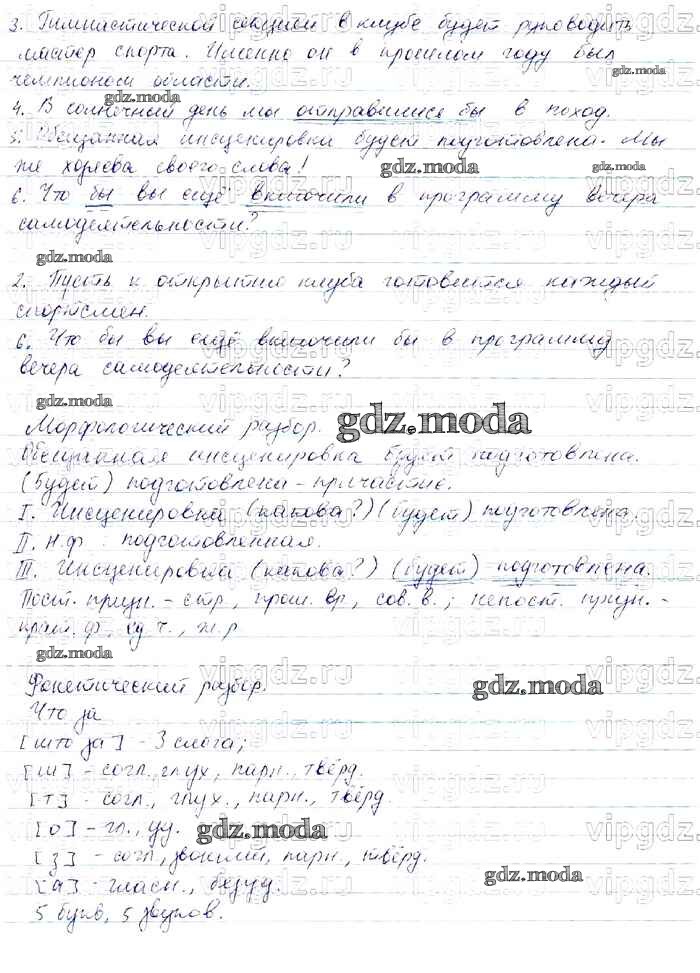 3. Гимнастической секцией в клубе будет руководить
мастер спорта. Именно он в прошлом году был
чемпионом области.
gdz.moda
gdz.moda
4. В солнечный день мы отправились бы в поход.
5. Обещанная инсценировка будет подготовлена. Мы
же хозяева своего слова!
gdz.moda
gdz.moda
6. Что бы вы ещё включили в программу вечера
самодеятельности?
gdz.moda
2. Пусть к открытию клуба готовится каждый
спортсмен.
6. Что бы вы ещё включили бы в программу
вечера самодеятельности?
gdz.moda
Морфологический разбор.
gdz.moda
Обещанная инсценировка будет подготовлена.
(Будет) подготовлена - причастие.
I. Инсценировка (какова?) (будет) подготовлена.
II. н.ф. подготовленная.
III. Инсценировка (какова?) (будет) подготовлена.
Пост. призн. - стр., прош. вр., сов. в.; непост. призн. -
крат. ф., ед. ч., ж. р.
gdz.moda
Фонетический разбор.
gdz.moda
Что за
[што за] - 3 слога;
[ш] - согл., глух., парн., твёрд.
[т] - согл., глух., парн., твёрд.
[о] - гл., уд.
gdz.moda
[з] - согл., звонкий, парн., твёрд.
[а] - гласн., безуд.
gdz.moda
5 букв, 5 звуков.
vipgdz.ru